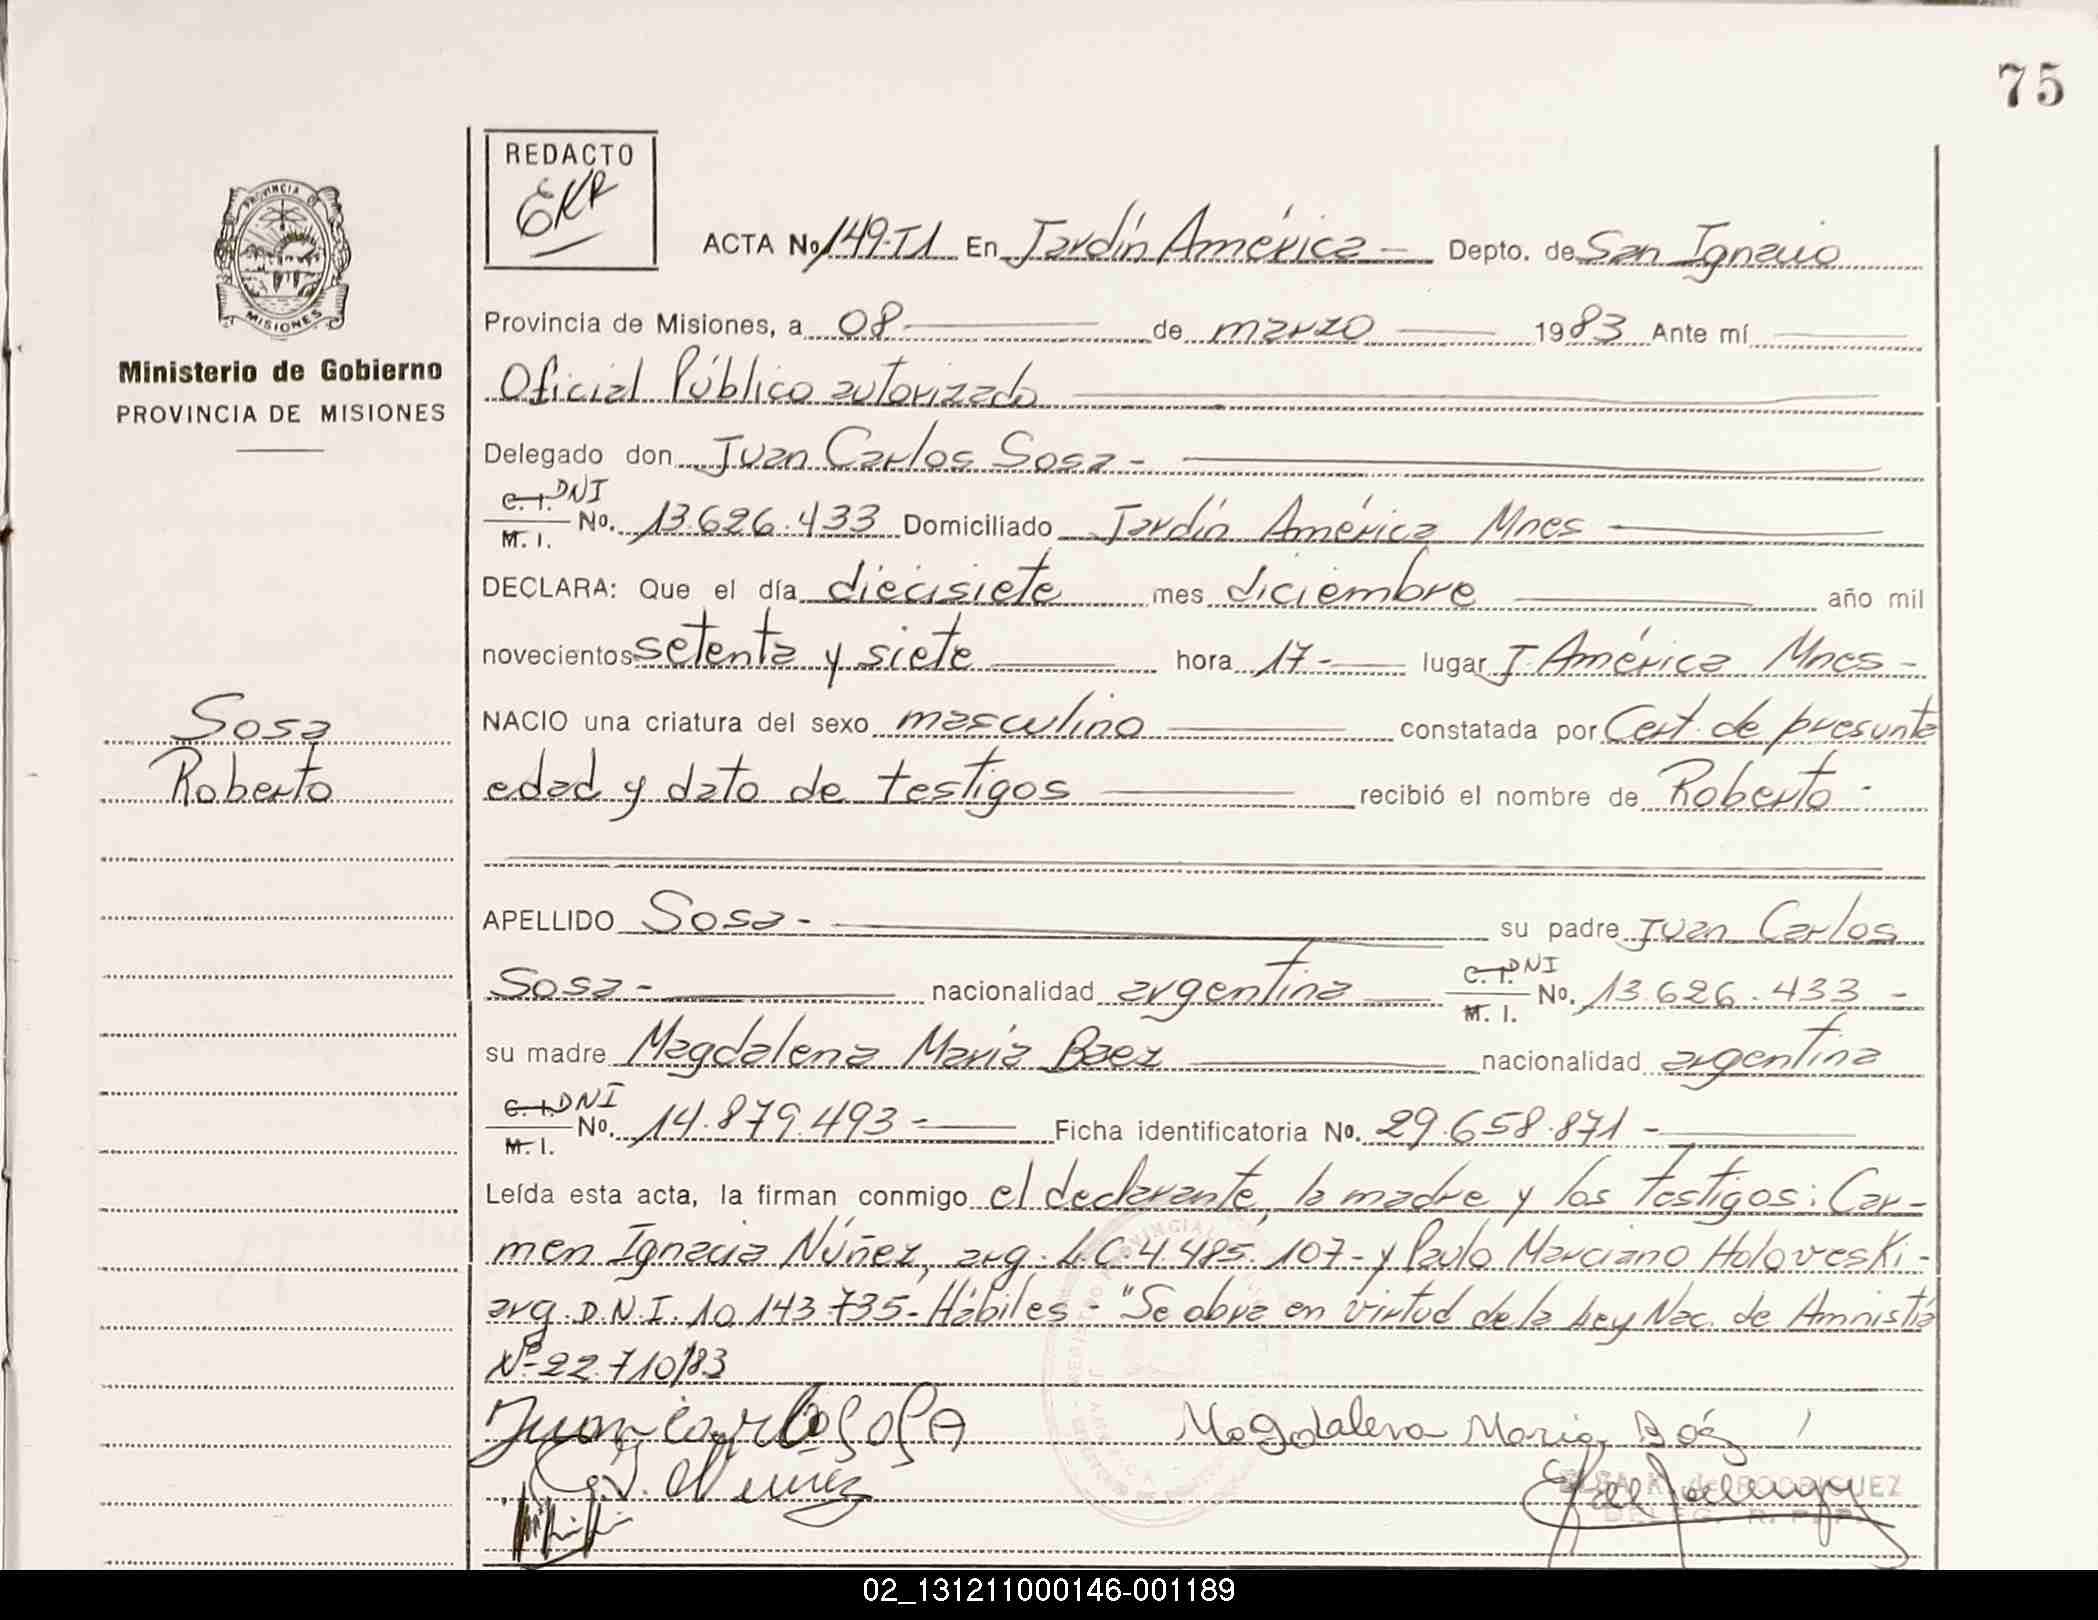 75
REDACTO
EKR
PROVINCIA
MISIONES
Ministerio de Gobierno
PROVINCIA DE MISIONES
ACTA No 149-T1 En Jardín América - Depto. de San Ignacio
Provincia de Misiones, a 08 de marzo 1983 Ante mí
Oficial Público autorizado
Delegado don Juan Carlos Sosa -
C. I. DNI
M. I. No. 13.626.433 Domiciliado Jardín América Mnes
DECLARA: Que el día diecisiete mes diciembre año mil
novecientos setenta y siete hora 17 - lugar J. América Mnes -
Sosa
Roberto
NACIO una criatura del sexo masculino constatada por Cert. de presunta
edad y dato de testigos recibió el nombre de Roberto -
APELLIDO Sosa - su padre Juan Carlos
Sosa - nacionalidad argentina C. I. DNI M. I. No. 13.626.433 -
su madre Magdalena María Baez nacionalidad argentina
C. I. DNI
M. I. No. 14.879.493 - Ficha identificatoria No. 29.658.871 -
Leída esta acta, la firman conmigo el declarante, la madre y los testigos: Car-
men Ignacia Núñez, arg. L.C. 4.485.107 - y Paulo Marciano Holoveski -
arg. D.N.I. 10.143.735 - Hábiles - "Se obra en virtud de la Ley Nac. de Amnistía
Nº 22.710/83
Juan carlos SoSA Magdalena Maria Báez
C. I. Nuñez
ELSA K. de RODRIGUEZ
DELEG. R. P. P.
02_131211000146-001189